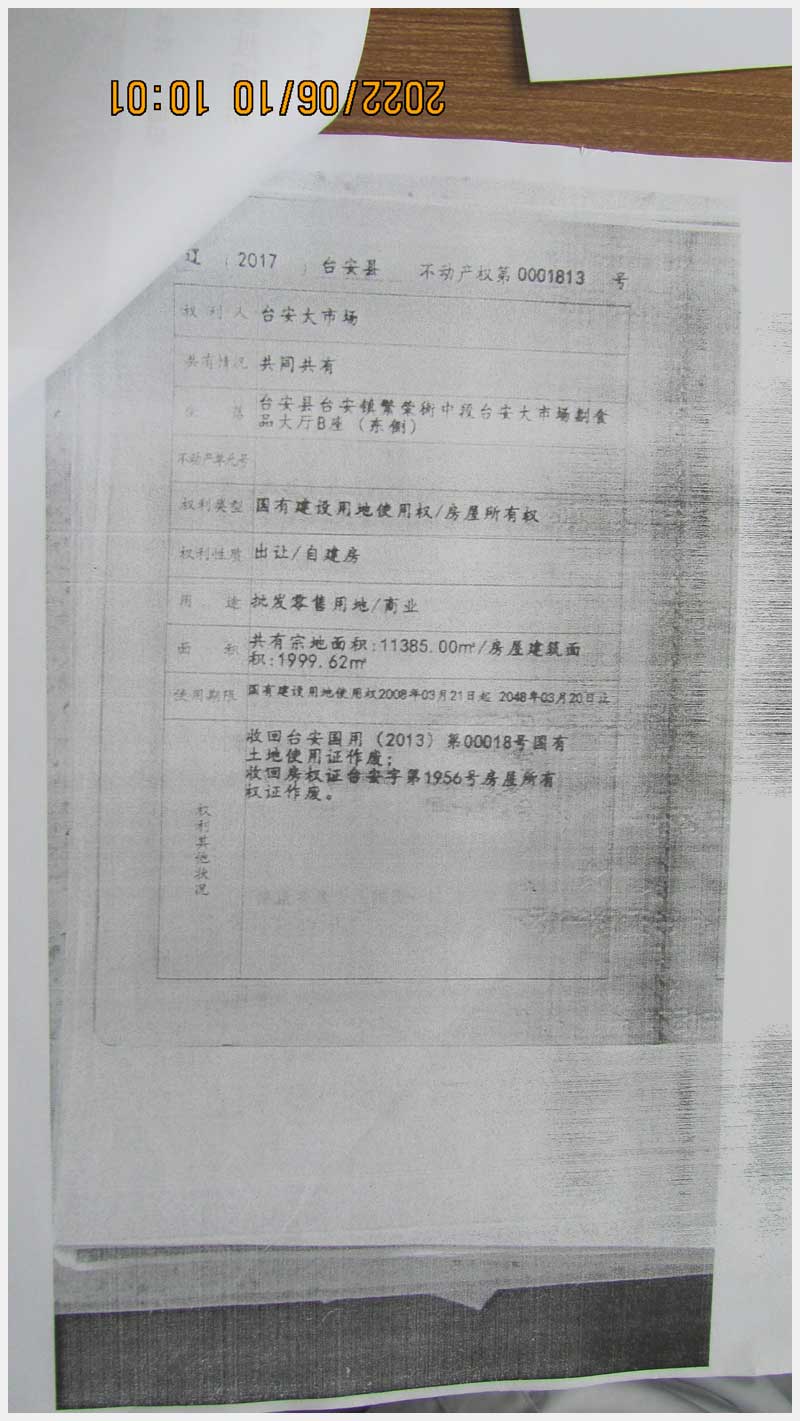 2022/06/10 10:01
辽（2017）台安县 不动产权第0001813 号
权利人 台安大市场
共有情况 共同共有
坐落 台安县台安镇繁荣街中段台安大市场副食
品大厅B座（东侧）
不动产单元号
权利类型 国有建设用地使用权/房屋所有权
权利性质 出让/自建房
用途 批发零售用地/商业
面积 共有宗地面积:11385.00㎡/房屋建筑面
积:1999.62㎡
使用期限 国有建设用地使用权2008年03月21日起 2048年03月20日止
权利其他状况
收回台安国用（2013）第00018号国有
土地使用证作废；
收回房权证台安字第1956号房屋所有
权证作废。